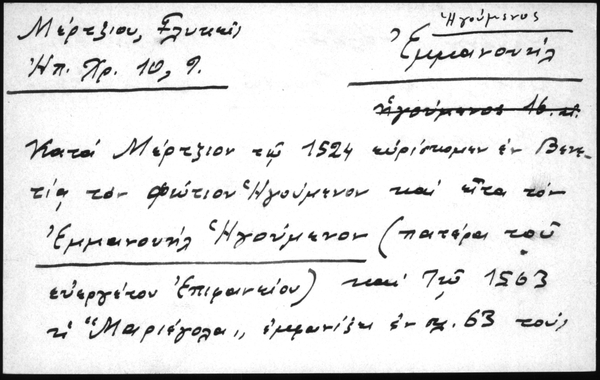 Μέρτζιου,
Ἠπ. Χρ. 10, 9.
Ἡγούμενος
Ἐμμανουήλ
Ἡγούμενος 16.
Κατά Μέρτζιον τῷ 1524 εὑρίσκομεν ἐν Βενε-
τίᾳ τόν Φώτιον Ἡγούμενον καί εἶτα τόν
Ἐμμανουήλ Ἡγούμενον (πατέρα τοῦ
εὐεργέτου Ἐπιφανείου) καί τῷ 1563
"Μαριέγολα,, ἐμφανίζει ἐν 63 τούς